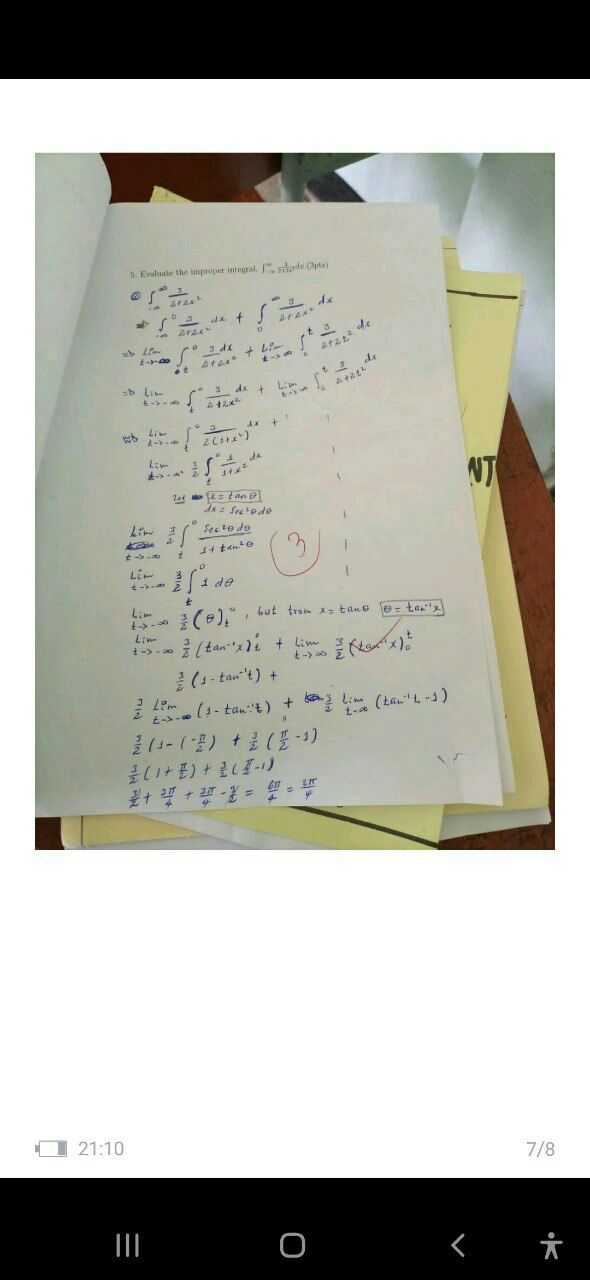 5. Evaluate the improper integral. ∫_{-∞}^{∞} 3/(2+2x²) dx (3pts)
∫_{-∞}^{∞} 3/(2+2x²)
⇒ ∫_{-∞}^{0} 3/(2+2x²) dx + ∫_{0}^{∞} 3/(2+2x²) dx
⇒ lim t→-∞ ∫_{t}^{0} 3dx/(2+2x²) + lim t→∞ ∫_{0}^{t} 3/(2+2t²) dx
⇒ lim t→-∞ ∫_{t}^{0} 3/(2+2x²) dx + lim t→∞ ∫_{0}^{t} 3/(2+2t²) dx
⇒ lim t→-∞ ∫_{t}^{0} 3/(2(1+x²)) dx +
lim t→-∞ 3/2 ∫_{t}^{0} 1/(1+x²) dx
Let x = tan θ
dx = Sec²θ dθ
lim t→-∞ 3/2 ∫_{t}^{0} Sec²θ dθ/(1+tan²θ)
3
lim t→-∞ 3/2 ∫_{t}^{0} 1 dθ
lim t→-∞ 3/2 (θ)_{t}^{0}, but from x = tan θ θ = tan⁻¹x
lim t→-∞ 3/2 (tan⁻¹x)_{t}^{0} + lim t→∞ 3/2 (tan⁻¹x)_{0}^{t}
3/2 (1-tan⁻¹t) +
3/2 lim t→-∞ (1-tan⁻¹t) + 3/2 lim t→∞ (tan⁻¹t-1)
8
3/2 (1-(-π/2) + 3/2 (π/2 -1)
3/2 (1+π/2) + 3/2 (π/2-1)
3/2 + 3π/4 + 3π/4 - 3/2 = 6π/4 = 2π/4
NT
21:10
7/8